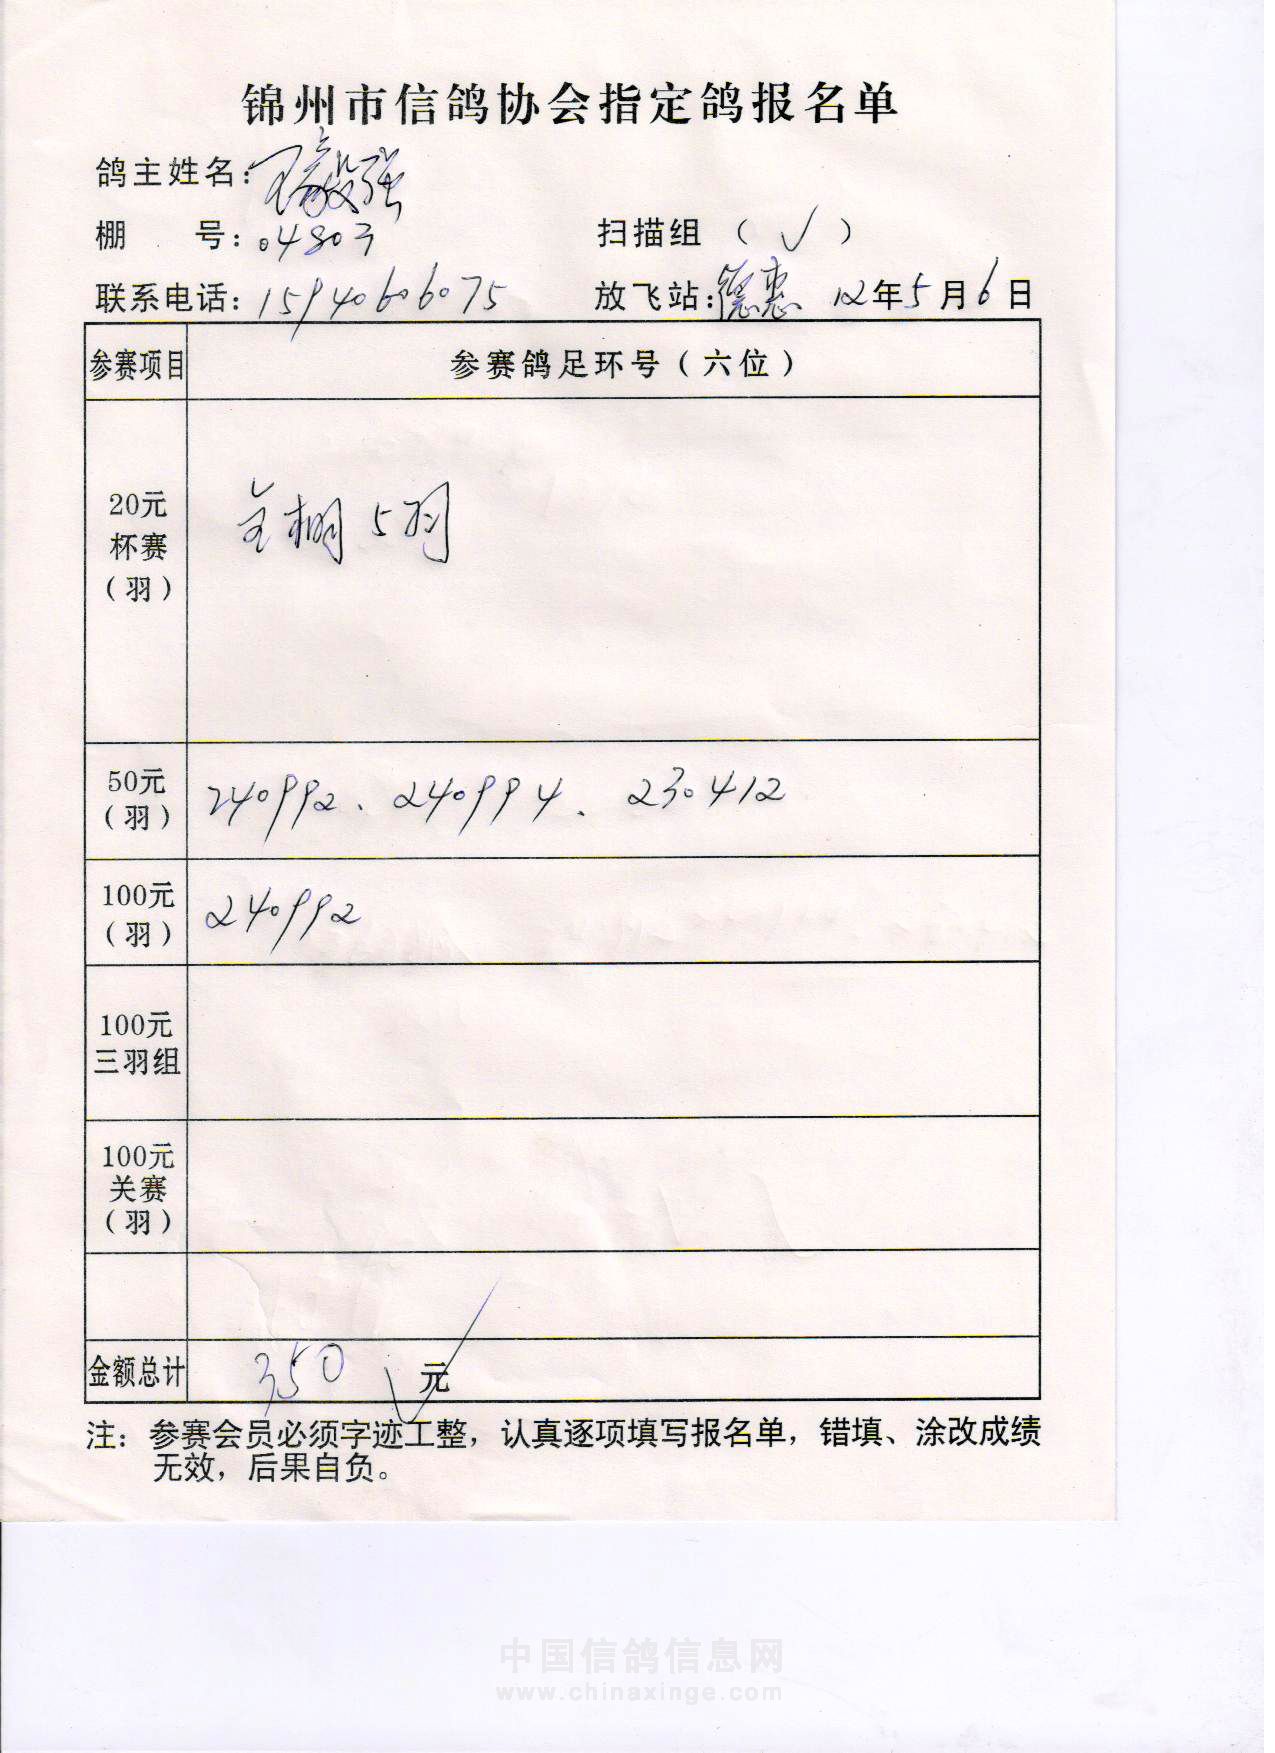 锦州市信鸽协会指定鸽报名单
鸽主姓名：王毅强
棚 号：04803 扫描组 （ √ ）
联系电话：15940606075 放飞站：德惠 12年5月6日
参赛项目 参赛鸽足环号（六位）
20元
杯赛
（羽）
全棚5羽
50元
（羽）
240992、240994、230412
100元
（羽）
240992
100元
三羽组
100元
关赛
（羽）
金额总计 350 元
注：参赛会员必须字迹工整，认真逐项填写报名单，错填、涂改成绩
无效，后果自负。
中国信鸽信息网
www.chinaxinge.com